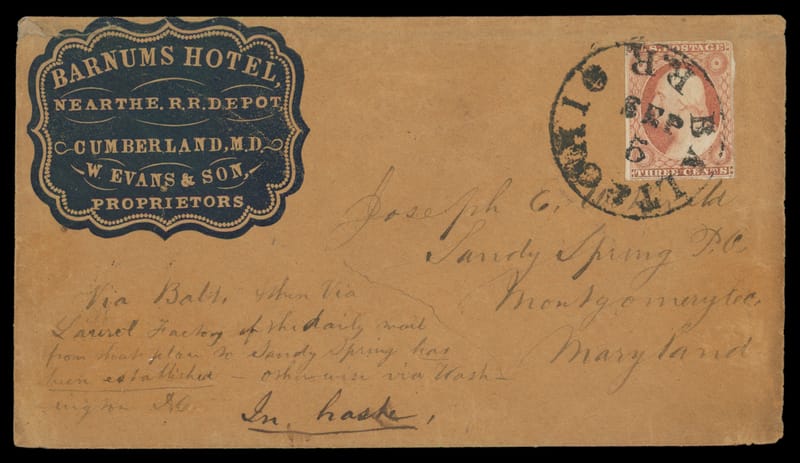 BARNUMS HOTEL,
NEAR THE. R.R. DEPOT
CUMBERLAND, M.D.
W EVANS & SON,
PROPRIETORS
U.S. POSTAGE
THREE CENTS
BALTO & OHIO R R
SEP
9
Joseph C.
Sandy Spring P.O.
Montgomery Co.
Maryland
Via Balt. then Via
Laurel Factory if the daily mail
from that place to Sandy Spring has
been established – otherwise via Wash-
ington D.C.
In haste,